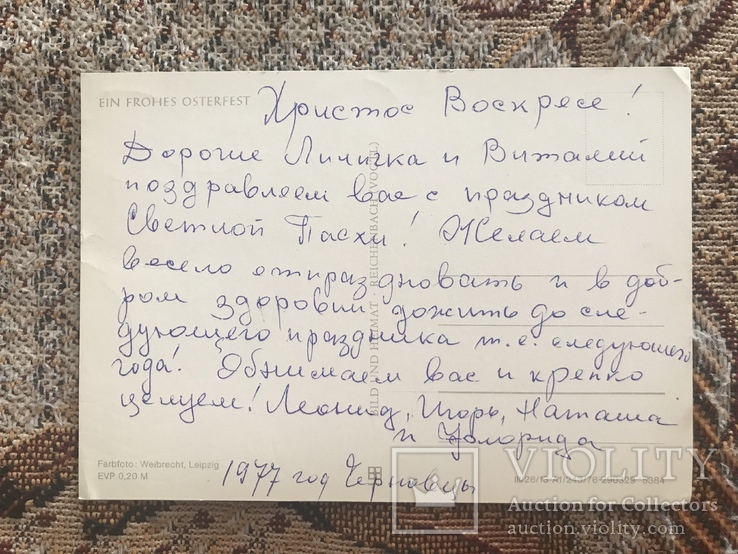 EIN FROHES OSTERFEST
Христос Воскресе!
Дорогие Лиличка и Виталий
поздравляем вас с праздником
Светлой Пасхи! Желаем
весело отпраздновать и в доб-
ром здоровии дожить до сле-
дующего праздника т.е. следующего
года! Обнимаем вас и крепко
целуем! Леонид, Игорь, Наташа
и
1977 год Черновцы
BILD UND HEIMAT · REICHENBACH (VOGTL)
Farbfoto: Weibrecht, Leipzig
EVP 0,20 M
VIOLITY
Auction for Collectors
auction.violity.com